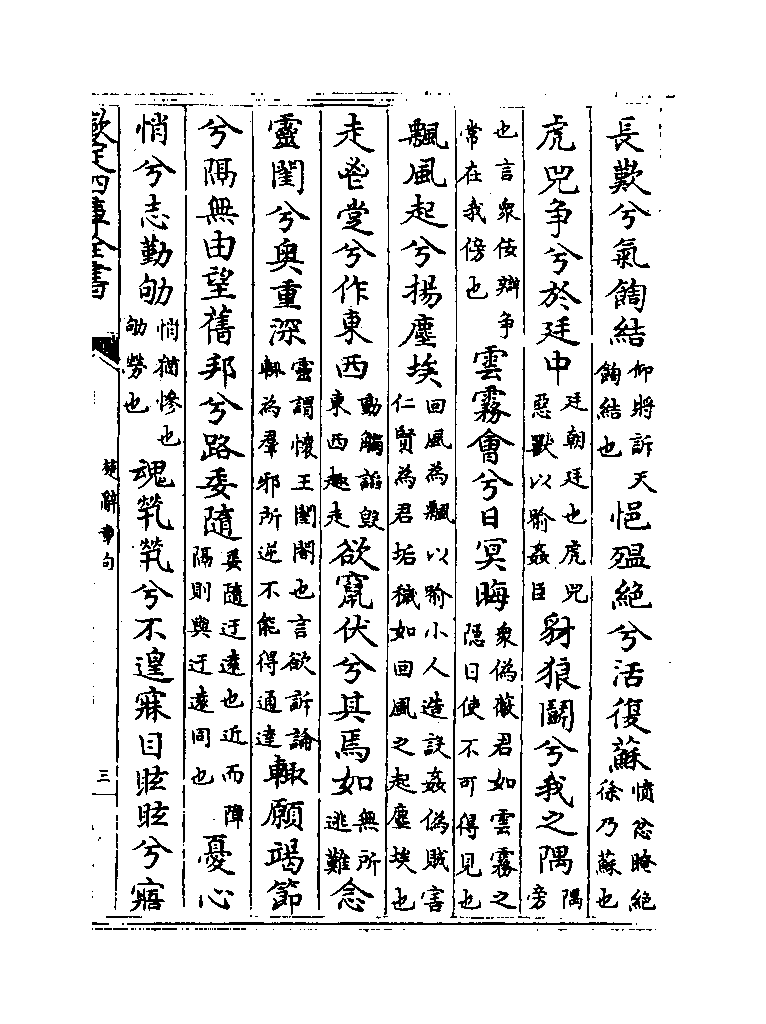 長歎兮氣䭇結仰將訴天䭇結也悒殟絶兮活復蘇憤忿晻絶徐乃蘇也
虎兕争兮於廷中廷朝廷也虎兕惡獸以喻姦臣豺狼鬭兮我之隅隅旁
也言衆佞辯争常在我傍也雲霧會兮日冥晦衆偽蔽君如雲霧之隱日使不可得見也
飄風起兮揚塵埃回風為飄以喻小人造設姦偽賊害仁賢為君垢穢如回風之起塵埃也
走鬯堂兮作東西動觸諂毁東西趣走欲竄伏兮其焉如無所逃難念
靈閨兮奥重深靈謂懷王閨閤也言欲訴論輙為羣邪所逆不能得通達輙願竭節
兮隔無由望舊邦兮路委隨委隨迂遠也近而障隔則與迂遠同也憂心
悄兮志勤劬悄猶慘也劬勞也魂煢煢兮不遑寐目眩眩兮寤
欽定四庫全書
楚辭章句
三